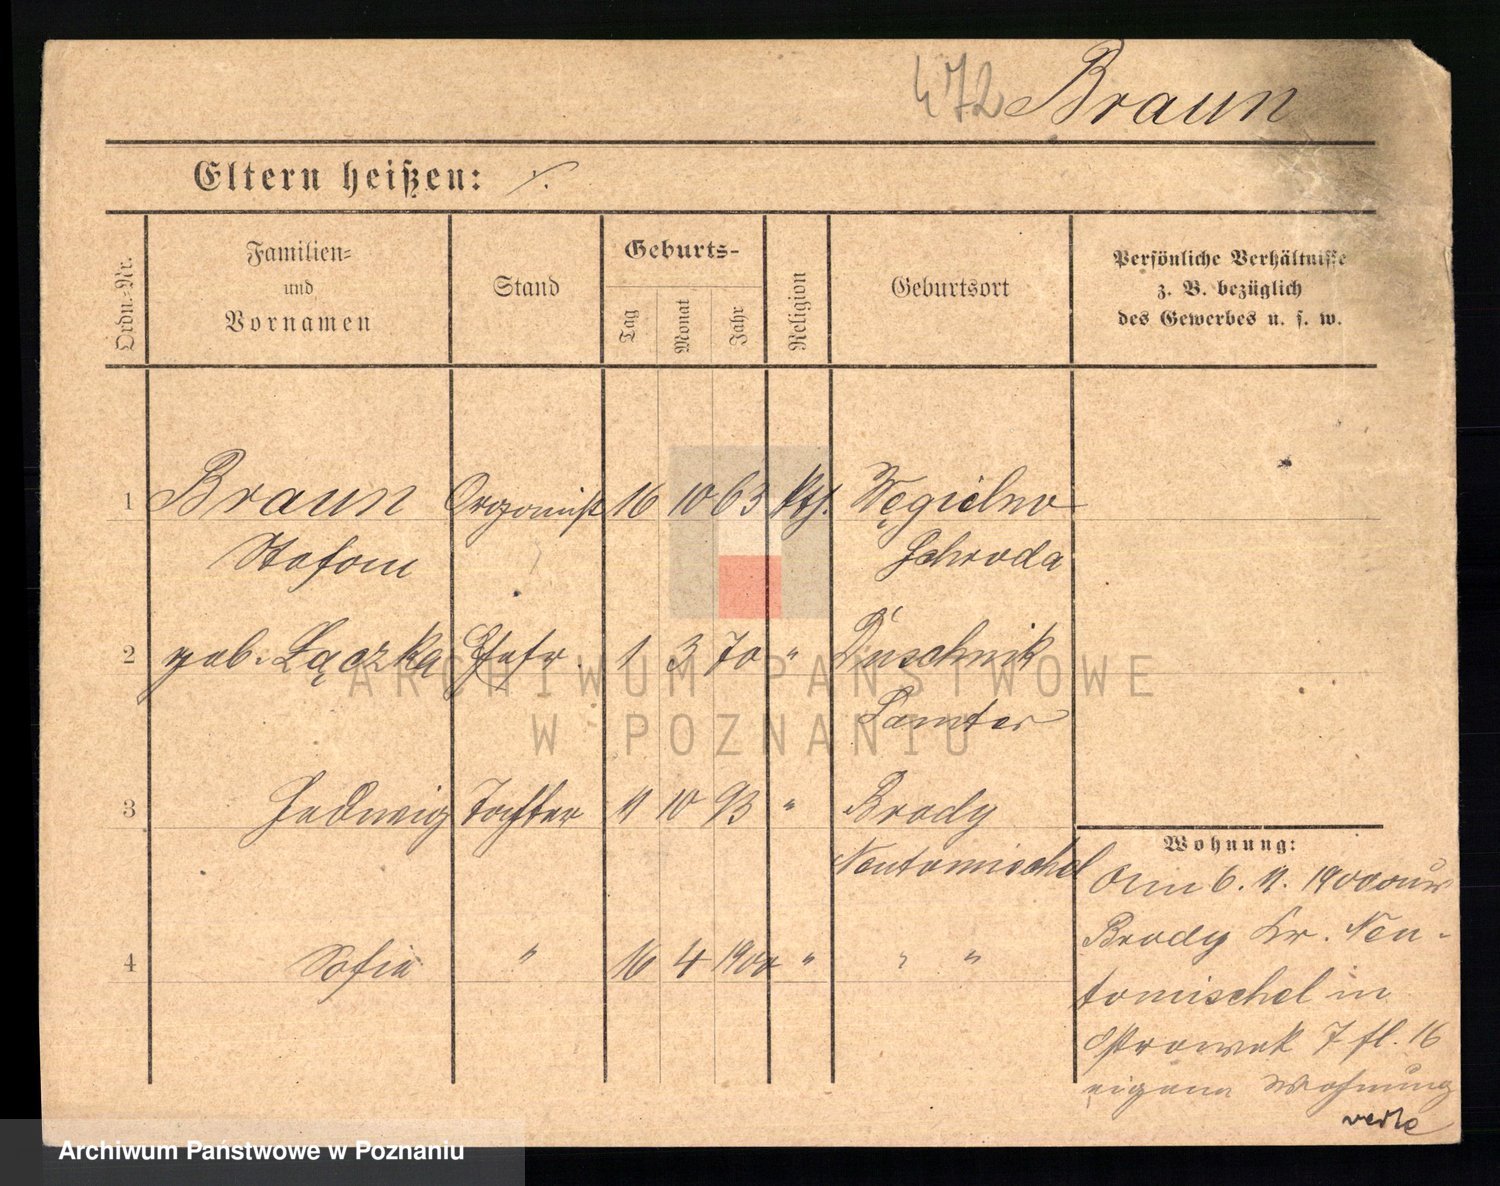 472 Braun
Eltern heißen: ⁒
Ordn.-Nr.
Familien-
und
Vornamen
Stand
Geburts-
Tag
Monat
Jahr
Religion
Geburtsort
Persönliche Verhältnisse
z. B. bezüglich
des Gewerbes u. s. w.
1 Braun Organist 16 10 63 kth. Węgielno
Stefan Schroda
2 geb. Łączka Ehefr. 1 3 70 " Duschnik
Samter
3 Hedwig Tochter 11 10 93 " Brody
Neutomischel
4 Sofia " 16 4 1900 " " "
Wohnung:
Am 6. 11. 1900 aus
Brody Kr. Neu-
tomischel in
Ostrowek 7 fl. 16
eigene Wohnung
ARCHIWUM PAŃSTWOWE
W POZNANIU
Archiwum Państwowe w Poznaniu